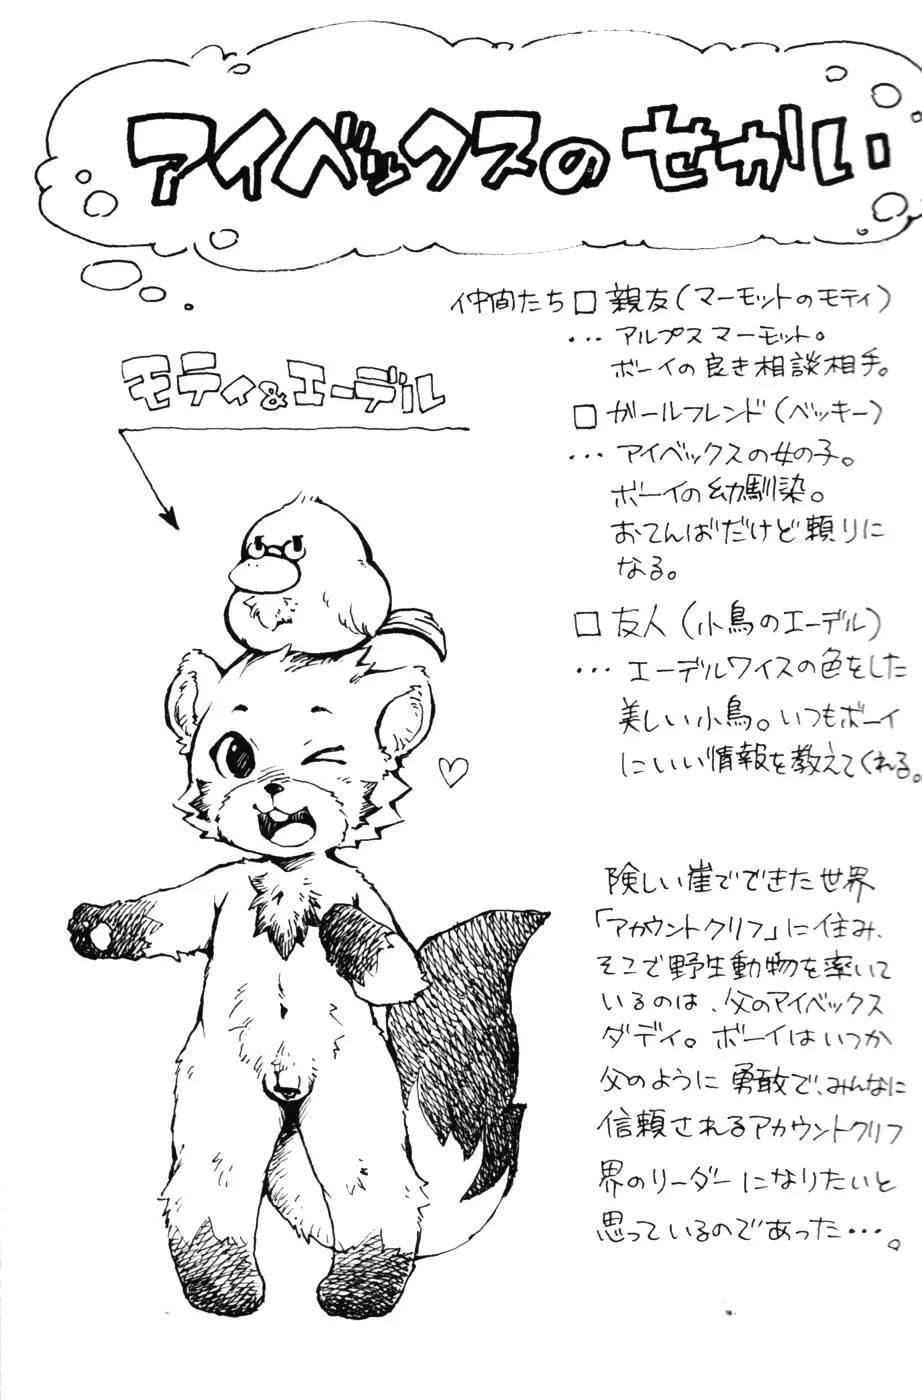 アイベックスのせかい
モティ&エーデル
仲間たち□ 親友(マーモットのモティ)
… アルプスマーモット。
ボーイの良き相談相手。
□ ガールフレンド(ベッキー)
… アイベックスの女の子。
ボーイの幼馴染。
おてんばだけど頼りに
なる。
□ 友人(小鳥のエーデル)
… エーデルワイスの色をした
美しい小鳥。いつもボーイ
にいい情報を教えてくれる。
険しい崖でできた世界
「アカウントクリフ」に住み、
そこで野生動物を率いて
いるのは、父のアイベックス
ダディ。ボーイはいつか
父のように勇敢で、みんなに
信頼されるアカウントクリフ
界のリーダーになりたいと
思っているのであった…。